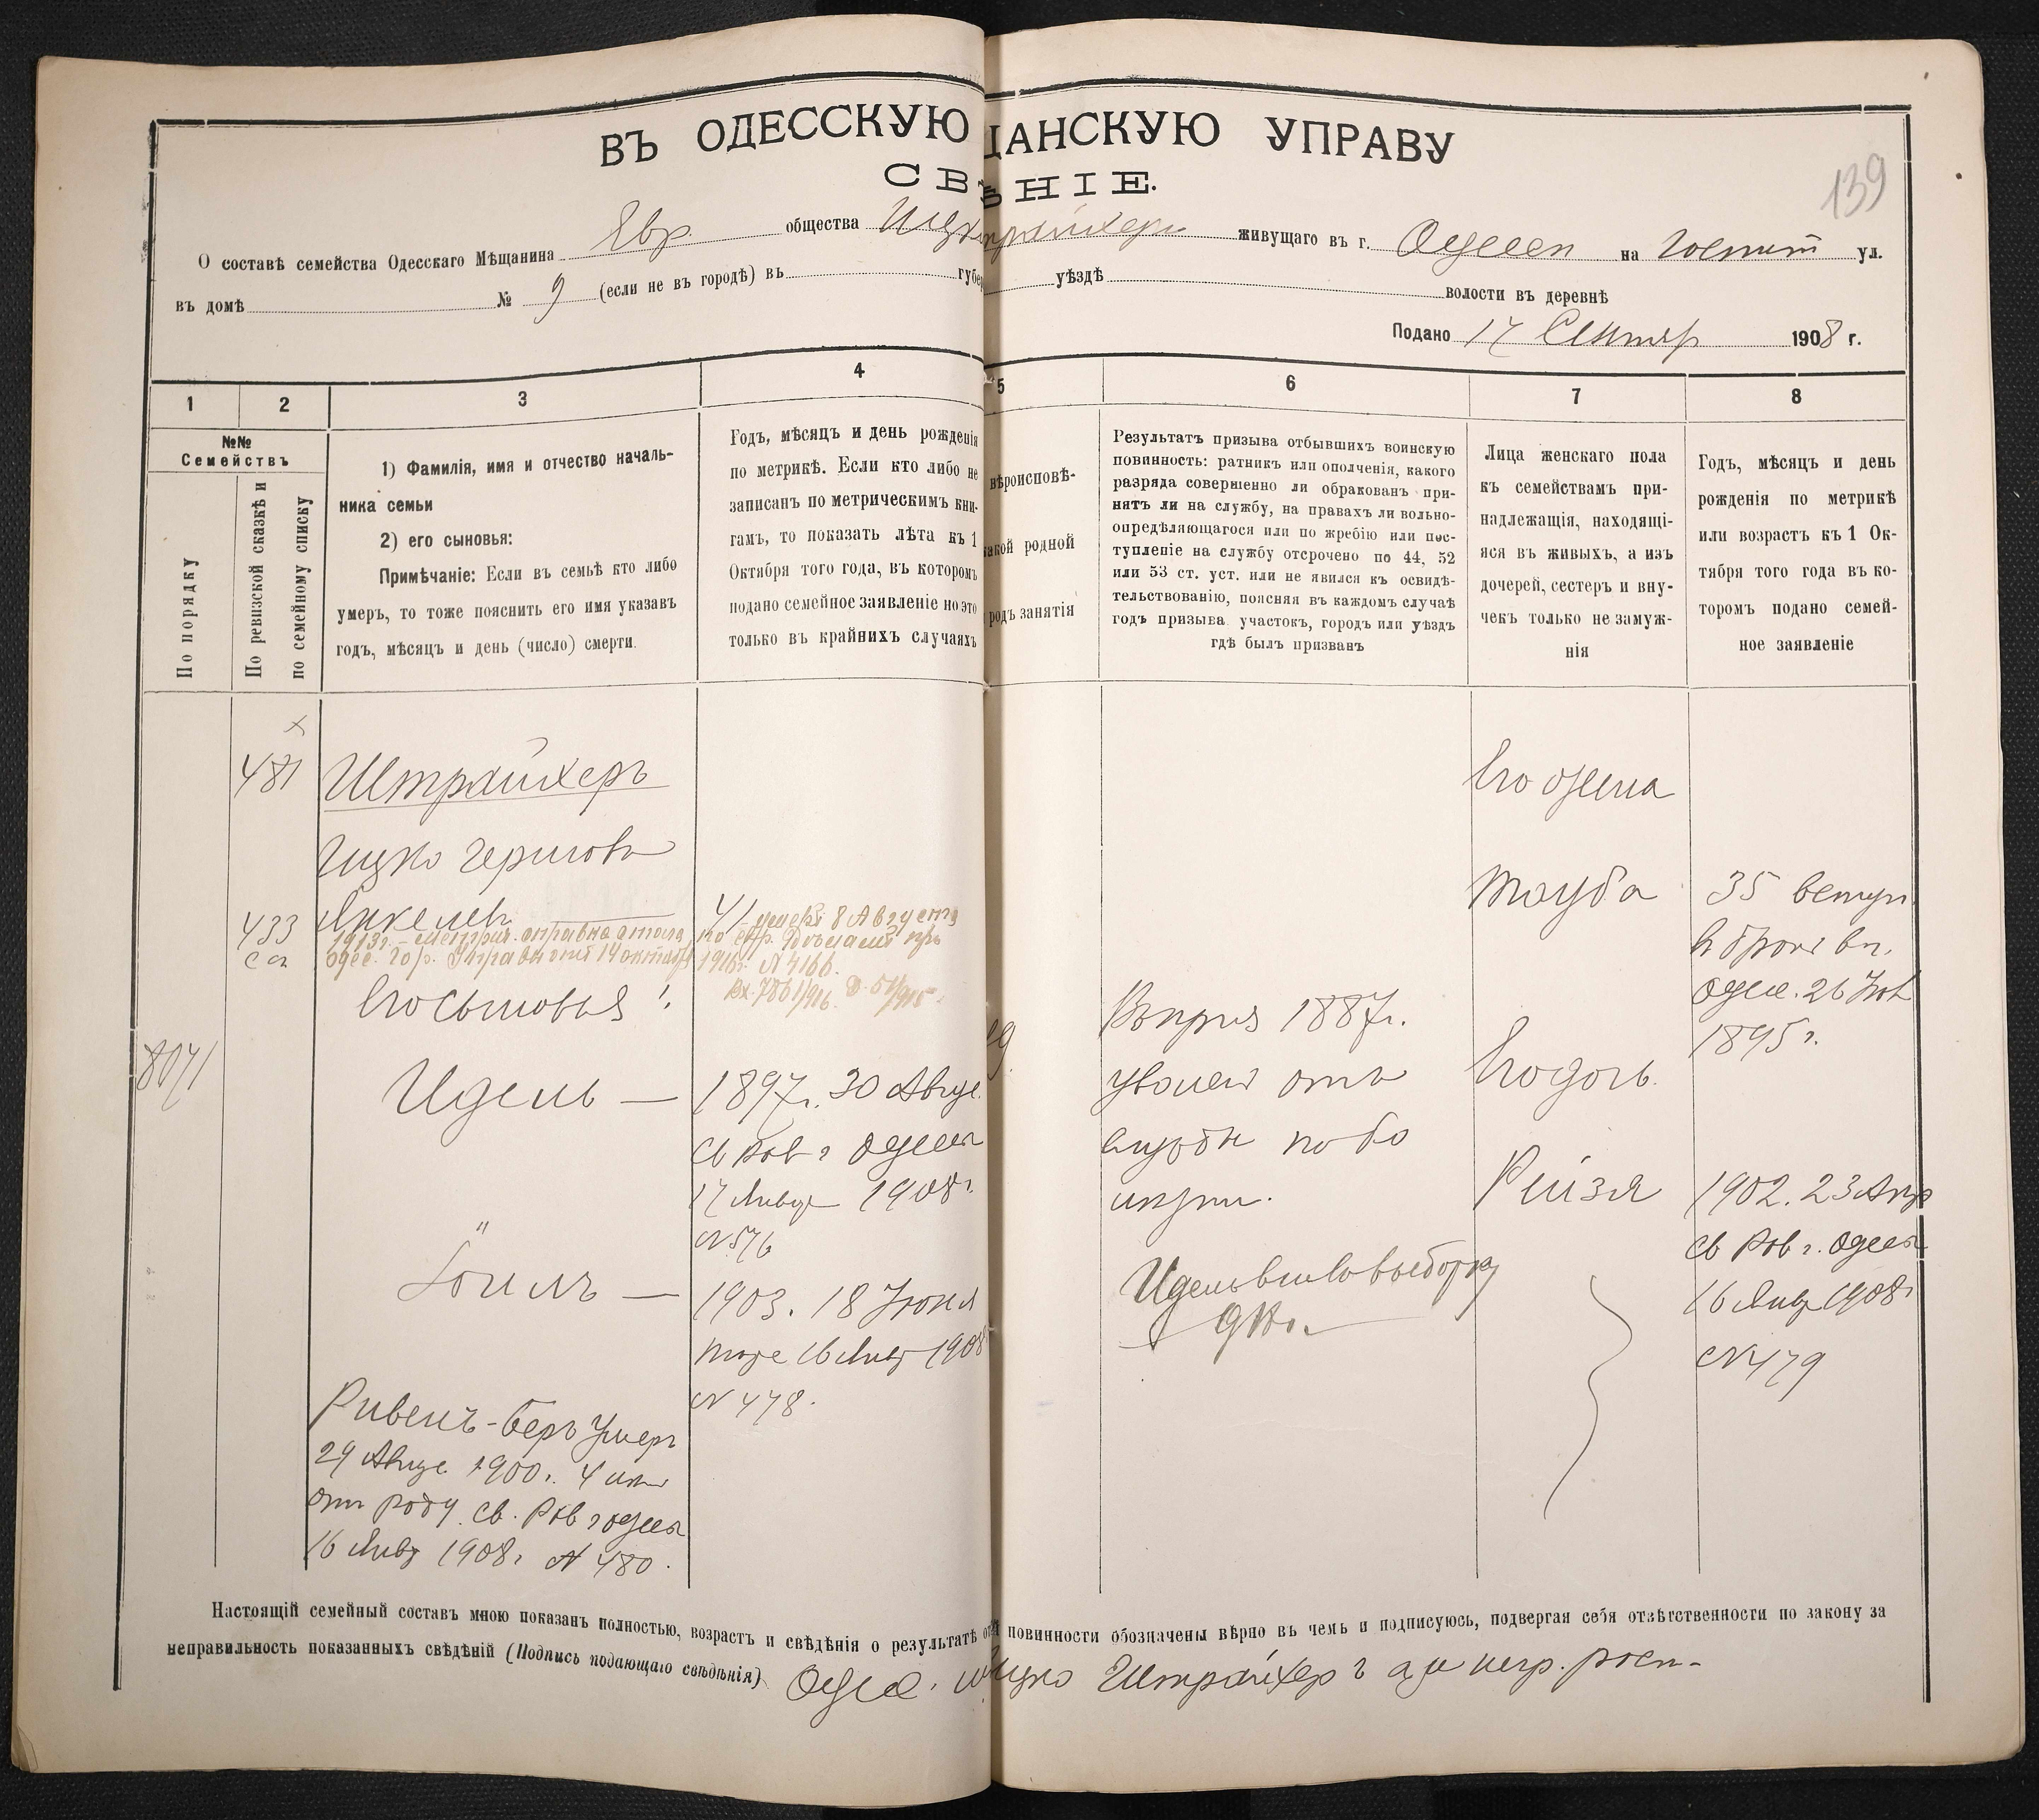 ВЪ ОДЕССКУЮ ЩАНСКУЮ УПРАВУ
СВ ѢНІЕ.
139
О составѣ семейства Одесскаго Мѣщанина Евр. общества Ицк Штрайхера живущаго въ г. Одессѣ на Госпит ул.
въ домѣ № 9 (если не въ городѣ) въ губер уѣздѣ волости въ деревнѣ
Подано 17 Сентяр 1908 г.
1 2 3 4 5 6 7 8
№№
Семействъ
По порядку
По ревизской сказкѣ и
по семейному списку
1) Фамилія, имя и отчество началь-
ника семьи
2) его сыновья:
Примѣчаніе: Если въ семьѣ кто либо
умеръ, то тоже пояснить его имя указавъ
годъ, мѣсяцъ и день (число) смерти.
Годъ, мѣсяцъ и день рожденія
по метрикѣ. Если кто либо не
записанъ по метрическимъ кни-
гамъ, то показать лѣта къ 1
Октября того года, въ которомъ
подано семейное заявленіе но это
только въ крайнихъ случаяхъ
вѣроисповѣ-
какой родной
родъ занятія
Результатъ призыва отбывшихъ воинскую
повинность: ратникъ или ополченія, какого
разряда совершенно ли обракованъ при-
нятъ ли на службу, на правахъ ли вольно-
опредѣляющагося или по жребію или пос-
тупленіе на службу отсрочено по 44, 52
или 53 ст. уст. или не явился къ освидѣ-
тельствованію, поясняя въ каждомъ случаѣ
годъ призыва участокъ, городъ или уѣздъ
гдѣ былъ призванъ
Лица женскаго пола
къ семействамъ при-
надлежащія, находящі-
яся въ живыхъ, а изъ
дочерей, сестеръ и вну-
чекъ только не замуж-
нія
Годъ, мѣсяцъ и день
рожденія по метрикѣ
или возрастъ къ 1 Ок-
тября того года въ ко-
торомъ подано семей-
ное заявленіе
481 Штрайхеръ
Ицко Гершовъ
433 Янкелев 41
умеръ 8 Августа
1913 г. - Метрич. справка
Одес. Гор. Управы отъ 14 октября 1916 г. № 4166.
Вх. 7861/916.
Его сыновья:
8071
Идель — 1897 г. 30 Авгус.
Св Рав г Одессы
17 Январ 1908 г.
№ 576
Іоиль — 1903. 18 Іюня
тоже 16 Янв 1908
№ 478.
Рувенъ-Беръ Умеръ
29 Авгус. 1900 г. 4 лет
отъ роду Св. Рав г Одессы
16 Янв 1908 г. № 480.
Въ приз 1887 г.
уволен отъ
службы по бо
лѣзни.
Идель
Его жена
Тауба 35
вступ.
въ бракъ въ г.
Одесс. 26 Ноя
1895 г.
Его доч.
Рейзя 1902. 23 Апр
Св Рав г. Одессы
16 Янв 1908 г
№ 479
Настоящій семейный составъ мною показанъ полностью, возрастъ и свѣдѣнія о результатѣ от повинности обозначены вѣрно въ чемъ и подписуюсь, подвергая себя отвѣтственности по закону за
неправильность показанныхъ свѣдѣній (Подпись подающаго свѣдѣнія) Одес. Ицко Штрайхеръ